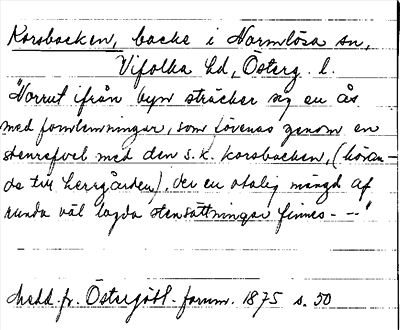 Korsbacken, backe i Normlösa sn,
Vifolka hd, Österg. l.
"Norrut ifrån byn sträcker sig en ås
med fornlemningar, som förenas genom en
stenrefvel med den s.k. korsbacken, (höran-
de till herrgården), der en otalig mängd af
runda väl lagda stensättningar finnes - -"
Medd. fr. Östergötl. fornm. 1875 s. 50